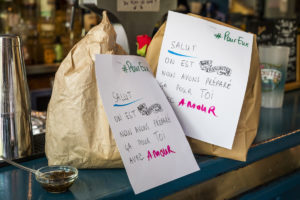 #PourEux
SALUT
ON EST
NOUS AVONS PRÉPARÉ
ÇA POUR TOI
AVEC AMOUR
#PourEux
SALUT
ON EST
NOUS AVONS PRÉPARÉ
ÇA POUR TOI
AVEC AMOUR